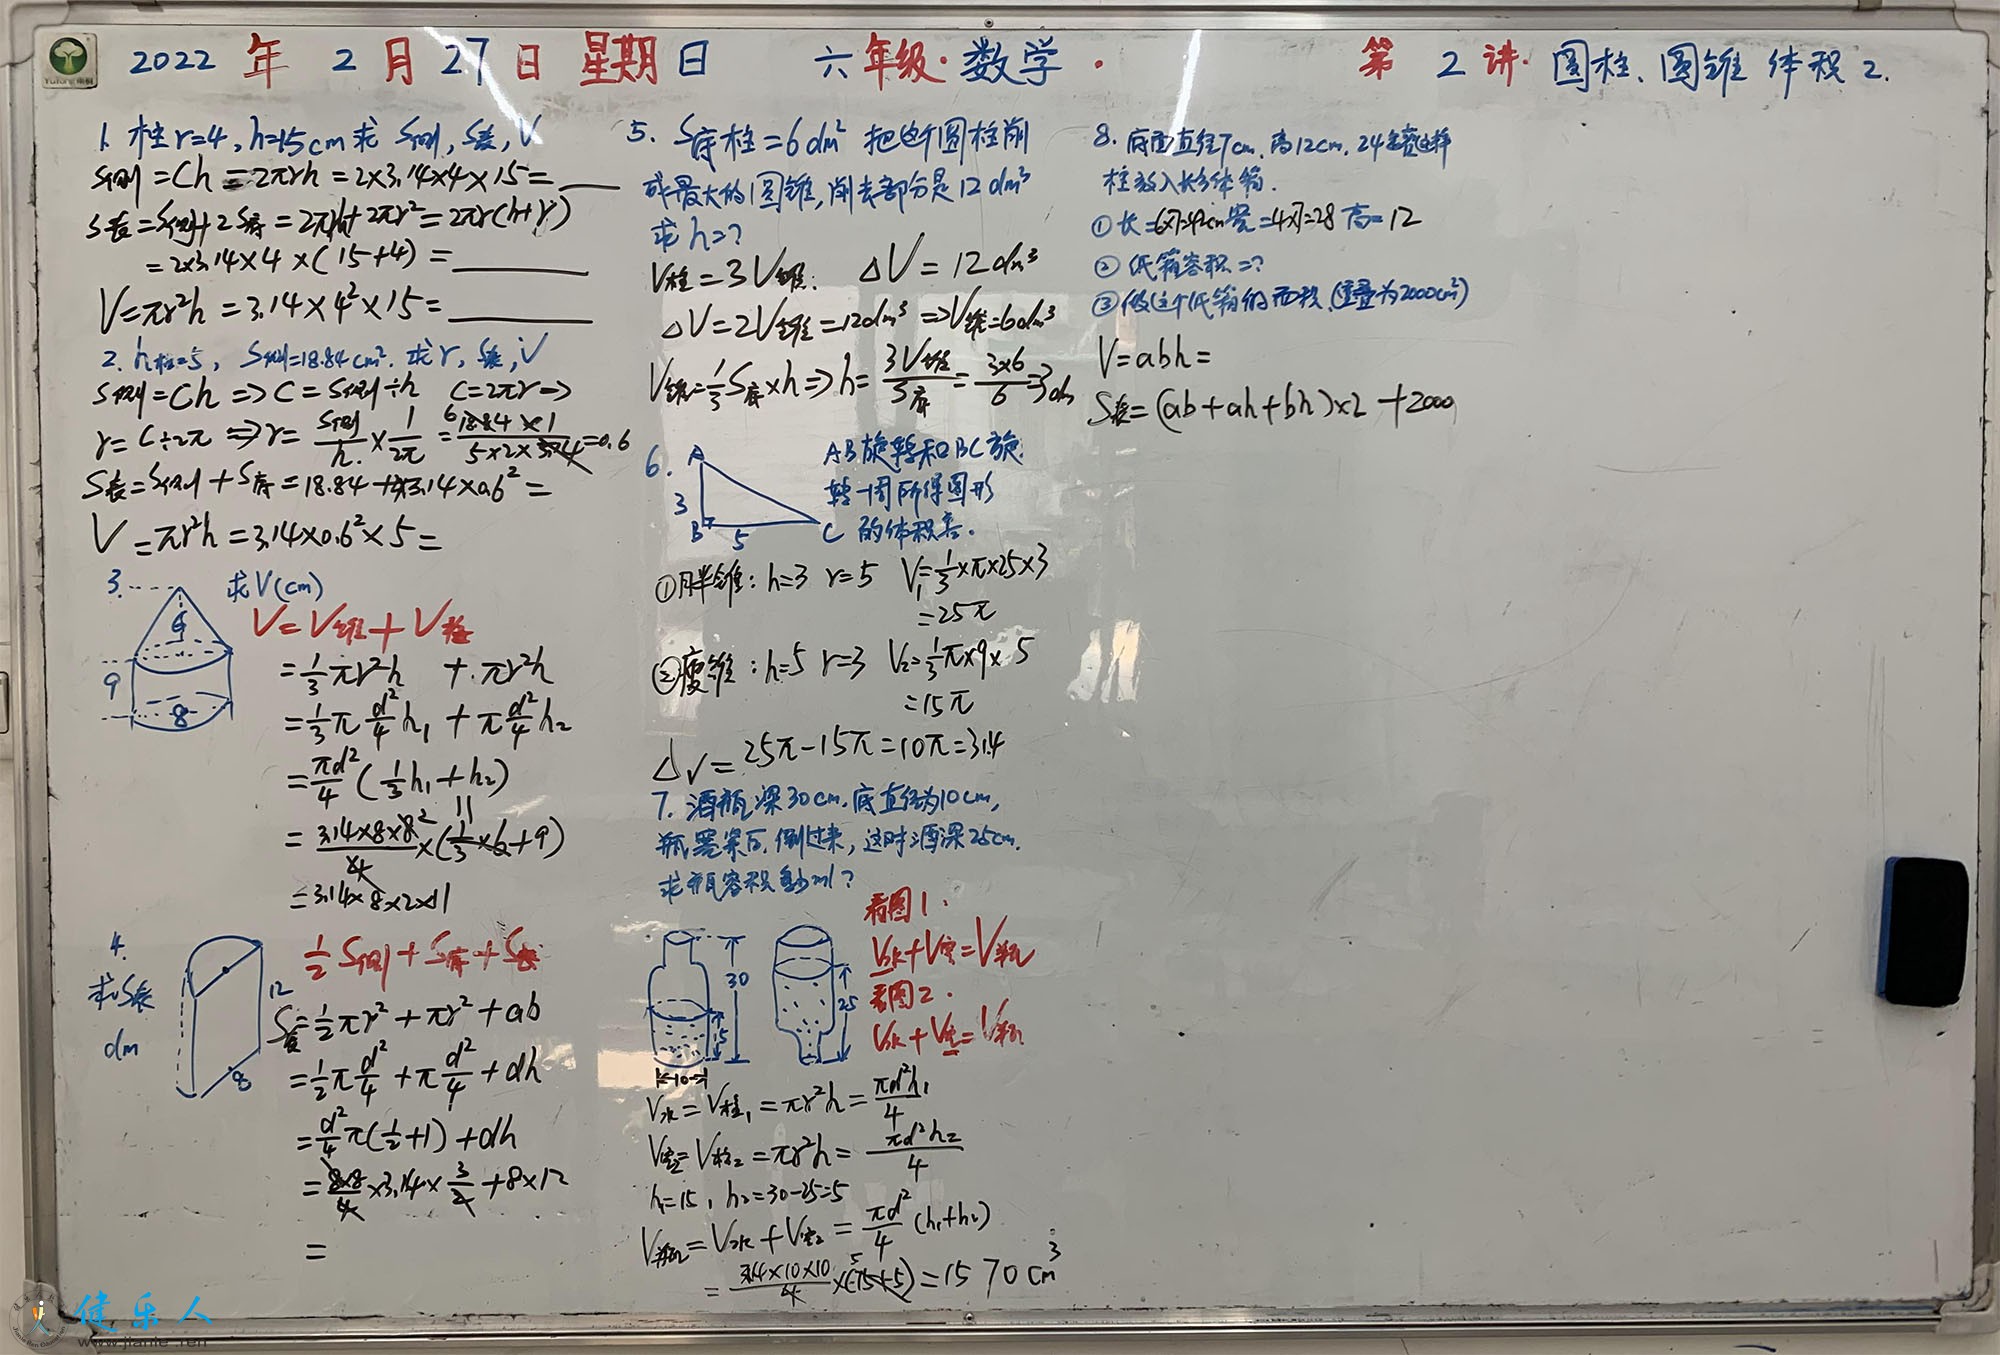 2022 年 2 月 27 日 星期日 六年级·数学· 第 2 讲·圆柱、圆锥 体积 2.
1. 柱 r=4, h=15cm 求 S侧, S表, V
S侧=Ch=2πrh=2×3.14×4×15=____
S表=S侧+2S底=2πrh+2πr²=2πr(h+r)
=2×3.14×4×(15+4)=____
V=πr²h=3.14×4²×15=____
2. h柱=5, S侧=18.84cm². 求r, S表, V
S侧=Ch⇒C=S侧÷h C=2πr⇒
r=C÷2π⇒r=S侧/h×1/2π=18.84×1/5×2×3.14=0.6
S表=S侧+S底=18.84+2×3.14×0.6²=
V=πr²h=3.14×0.6²×5=
3. 求V(cm)
6
9
8
V=V锥+V柱
=1/3πr²h+πr²h
=1/3π d²/4 h₁+π d²/4 h₂
=πd²/4(1/3h₁+h₂)
=3.14×8×8/4×(1/3×6+9)
11
=3.14×8×2×11
4.
求S表
dm
12
8
1/2S侧+S底+S表
S表=1/2πr²+πr²+ab
=1/2π d²/4+π d²/4+dh
=d²/4π(1/2+1)+dh
=8×8/4×3.14×3/2+8×12
=
5. S底柱=6dm² 把这个圆柱削
成最大的圆锥,削去部分是12dm³
求h=?
V柱=3V锥. ΔV=12dm³
ΔV=2V锥=12dm³⇒V锥=6dm³
V锥=1/3S底×h⇒h=3V锥/S底=3×6/6=3dm
6. A
3
B 5 C
AB旋转和BC旋
转一周所得图形
的体积差.
①胖锥:h=3 r=5 V₁=1/3×π×25×3
=25π
②瘦锥:h=5 r=3 V₂=1/3π×9×5
=15π
ΔV=25π-15π=10π=31.4
7. 酒瓶深30cm,底直径为10cm,
瓶塞紧后,倒过来,这时酒深25cm.
求瓶容积多少ml?
30
15
10
25
看图1.
V水+V空=V瓶
看图2.
V水+V空=V瓶
V水=V柱₁=πr²h=πd²h₁/4
V空=V柱₂=πr²h=πd²h₂/4
h₁=15, h₂=30-25=5
V瓶=V水+V空₂=πd²/4(h₁+h₂)
=3.14×10×10/4×(15+5)=1570cm³
8. 底面直径7cm,高12cm,24
柱放入长方体箱.
①长=6×7=42cm宽=4×7=28 高=12
②纸箱容积=?
③做这个纸箱的面积.(重叠为2000cm²)
V=abh=
S表=(ab+ah+bh)×2+2000
健乐人
www.jianle.ren